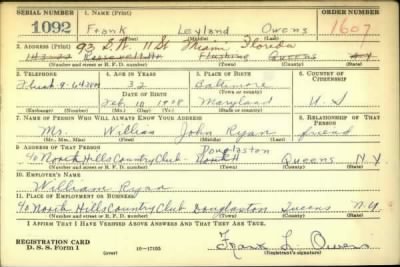 SERIAL NUMBER 1. NAME (Print) ORDER NUMBER
1092 Frank Leyland Owens 1607
(First) (Middle) (Last)
2. ADDRESS (Print) 93 S.W. 11 St Miami Florida
143-22 Roosevelt Ave Flushing Queens N.Y.
(Number and street or R. F. D. number) (Town) (County) (State)
3. TELEPHONE 4. AGE IN YEARS 5. PLACE OF BIRTH 6. COUNTRY OF CITIZENSHIP
32 Baltimore
DATE OF BIRTH (Town or county)
Feb 10 1908 Maryland U.S
(Exchange) (Number) (Mo.) (Day) (Yr.) (State or country)
7. NAME OF PERSON WHO WILL ALWAYS KNOW YOUR ADDRESS 8. RELATIONSHIP OF THAT PERSON
Mr. William John Ryan friend
(Mr., Mrs., Miss) (First) (Middle) (Last)
9. ADDRESS OF THAT PERSON Douglaston
40 North Hills Country Club - Queens N.Y.
(Number and street or R. F. D. number) (Town) (County) (State)
10. EMPLOYER'S NAME
William Ryan
11. PLACE OF EMPLOYMENT OR BUSINESS
40 North Hills Country Club Douglaston Queens N.Y
(Number and street or R. F. D. number) (Town) (County) (State)
I AFFIRM THAT I HAVE VERIFIED ABOVE ANSWERS AND THAT THEY ARE TRUE.
REGISTRATION CARD
D. S. S. Form 1 (over) Frank L. Owens
(Registrant's signature)